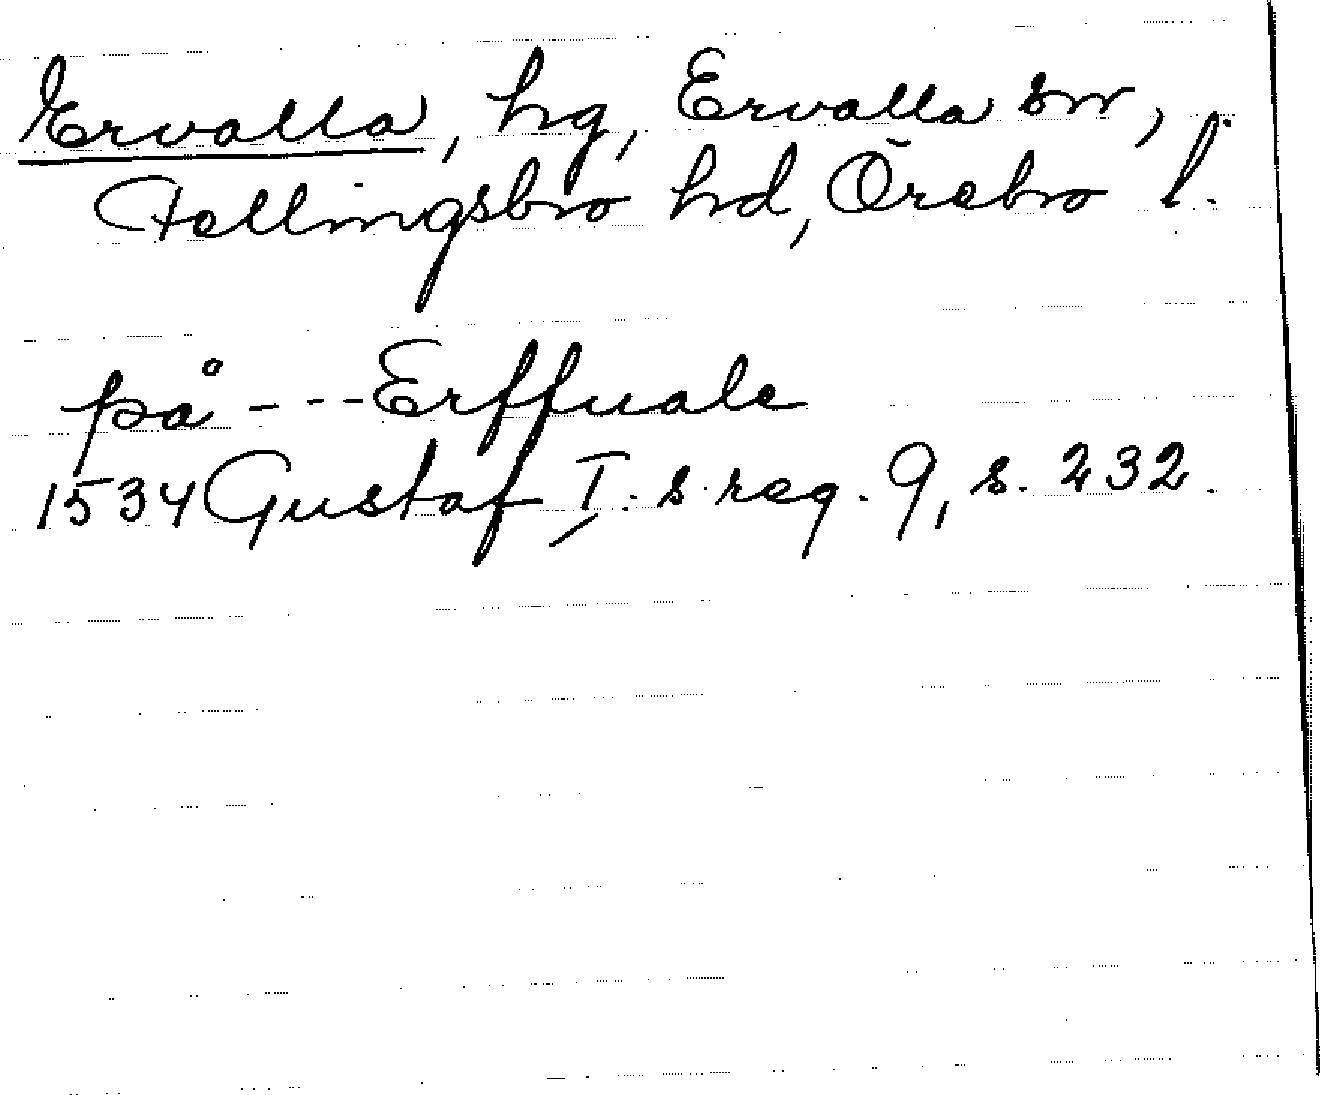 Ervalla, hg, Ervalla sn,
Fellingsbro hd, Örebro l.
på - - - Erffuale
1534 Gustaf I. s. reg. 9, s. 232.